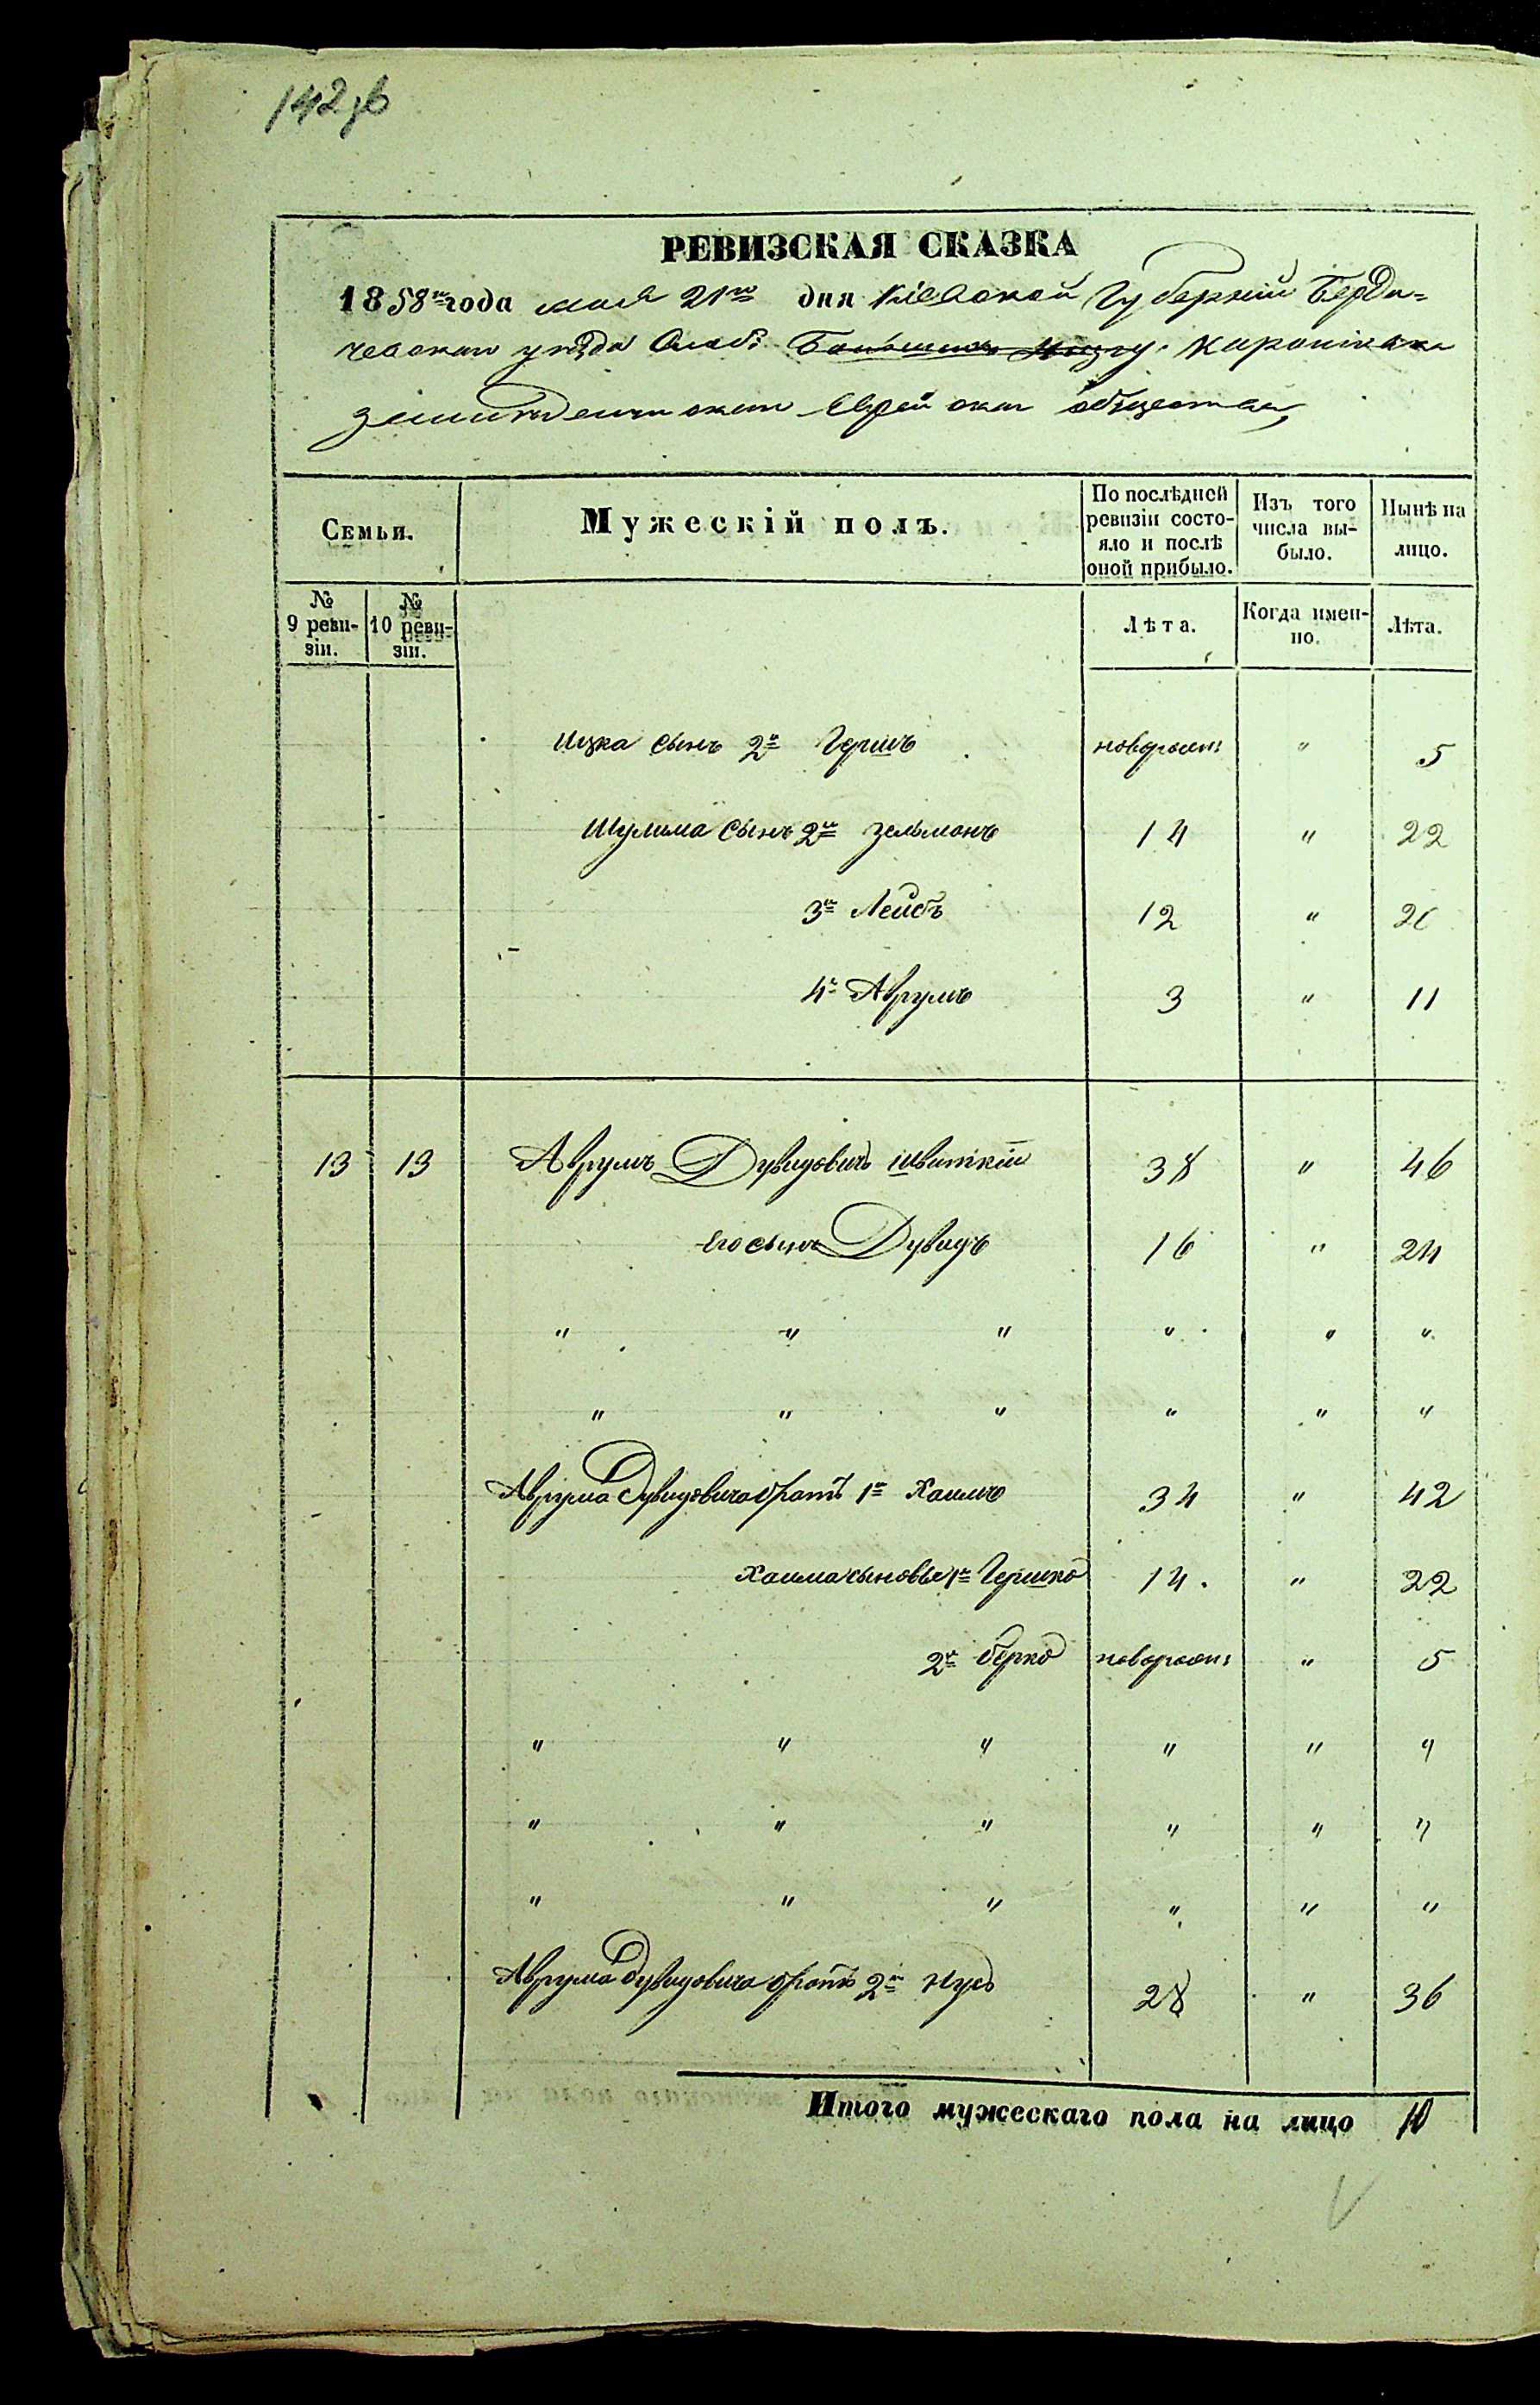 142об
РЕВИЗСКАЯ СКАЗКА
1858го года мая 21го дня Кіевской Губерніи Берди=
чевскаго уѣзда
Еврейскаго общества
Семьи.
Мужескій полъ.
По послѣдней ревизіи состояло и послѣ оной прибыло.
Изъ того числа выбыло.
Нынѣ на лицо.
№ 9 ревизіи.
№ 10 ревизіи.
Лѣта.
Когда именно.
Лѣта.
Ицка сынъ 2й Гершъ новорожд: " 5
Шулима сынъ 2й Зельманъ 14 " 22
3й Лейбъ 12 " 20
4й Аврумъ 3 " 11
13 13 Аврумъ Дувидовичъ 38 " 46
Его сынъ Дувидъ 16 " 24
" " " " " "
" " " " " "
Аврума Дувидовича братъ 1й Хаимъ 34 " 42
Хаима сыновья 1й Гершко 14 " 22
2й Берко новорожд: " 5
" " " " " "
" " " " " "
" " " " " "
Аврума Дувидовича братъ 2й Нусъ 28 " 36
Итого мужескаго пола на лицо 10